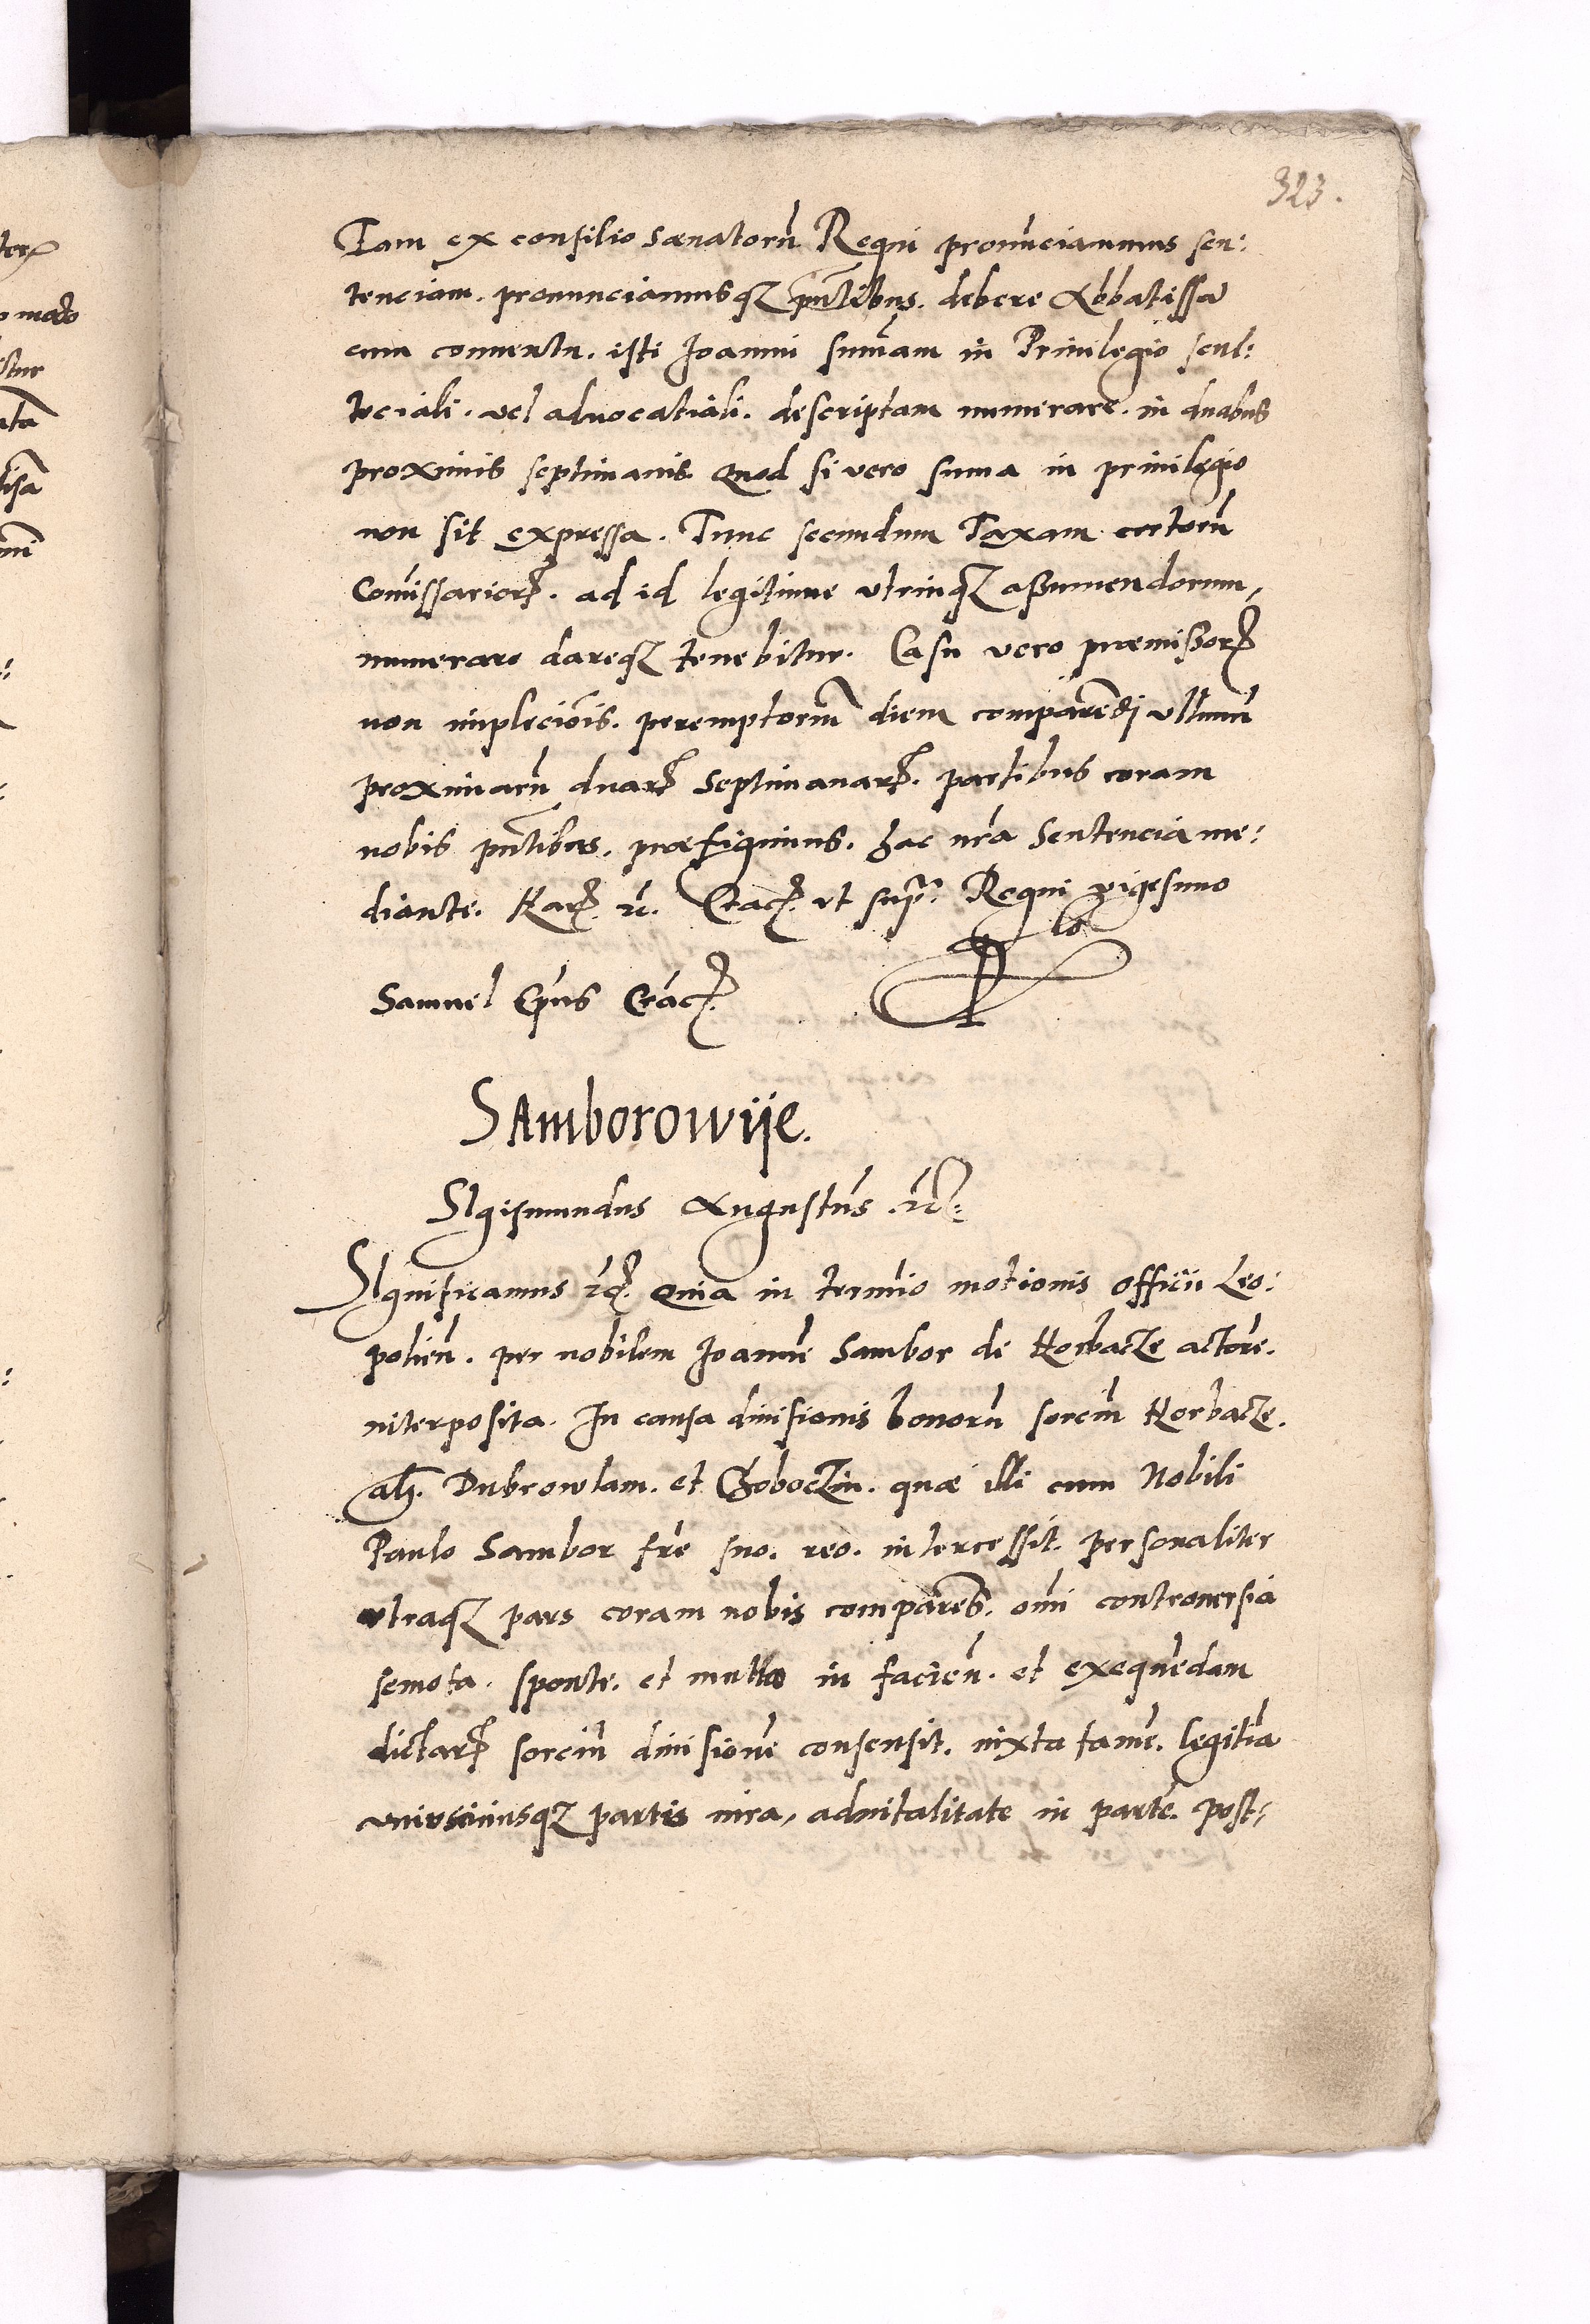 323.
Tam ex consilio Sænatorū Regni pronūciamus sen:
tenciam. pronunciamusqʒ pn̄tibus. debere Abbatissā
cum conuentu. isti Joanni sum̄am in Priuilegio scul:
tecialj. vel aduocatiali. descriptam numerare. in duabus
proximis septimanis Quod si vero suma in priuilegio
non sit expressa. Tunc secundum Taxam certorū
Com̄issarior. ad id legitime vtrinqʒ assumendorum,
numerare dareqʒ tenebitur. Casu vero præmissor
non impleciōis. peremptoriū diem comparendj vltimū
proximarū duar Septimanar. partibus coram
nobis pn̄tibus. præfigimus. hac nr̄a Sentencia me:
diante. Har. rc. Crac. vt supr. Regni vigesimo
Samuel Ep̄us Crac.
Samborowije.
Sigismundus Augustus. rc:
Significamus rc. Quia in termīo motionis officii Leo:
polien̄. per nobilem Joannē Sambor de Horbacze actorē.
interposita. In causa diuisionis bonorū sorciū Horbacze.
als. Dubrowlam. et Choboczin. quæ illi cum Nobili
Paulo Sambor fr̄e suo. reo. intercessit. personaliter
vtraqʒ pars coram nobis comparēs. om̄i controuersia
semota. sponte. et mutuo in facien̄. et exequēdam
dictar sorciū diuisionē consensit. iuxta tamē. legitīa
vniuscuiusqʒ partis iura, aduitalitate in partē. post-